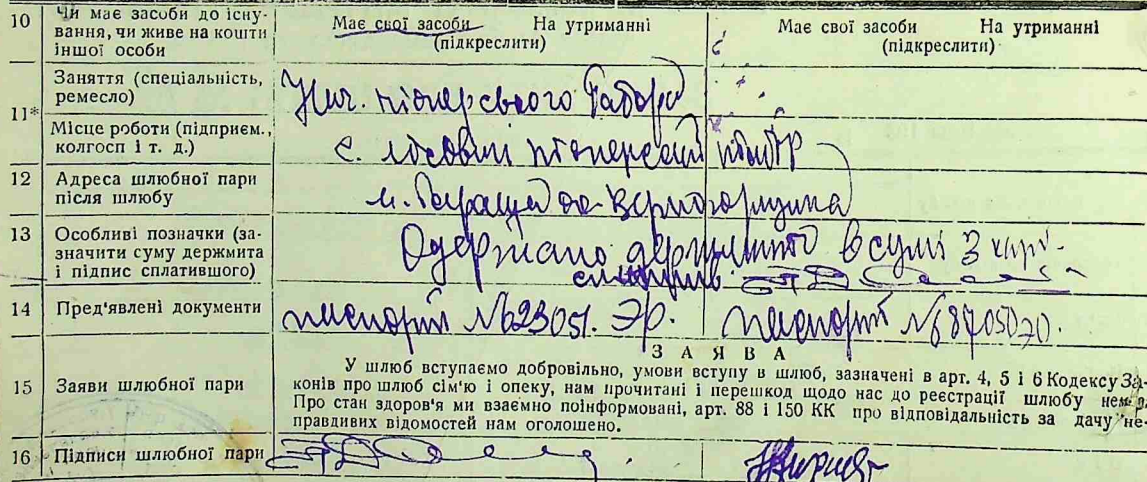 10 Чи має засоби до існування, чи живе на кошти іншої особи
Має свої засоби На утриманні
(підкреслити)
Має свої засоби На утриманні
(підкреслити)
11* Заняття (спеціальність, ремесло)
Нач. піонерського
Місце роботи (підприєм., колгосп і т. д.)
с. лісовий піонерський
12 Адреса шлюбної пари після шлюбу
м.
13 Особливі позначки (зазначити суму держмита і підпис сплатившого)
Одержано держмито в сумі 3 карб.
14 Пред'явлені документи
паспорт №23051. ЭР. паспорт №
ЗАЯВА
15 Заяви шлюбної пари
У шлюб вступаємо добровільно, умови вступу в шлюб, зазначені в арт. 4, 5 і 6 Кодексу За-
конів про шлюб сім'ю і опеку, нам прочитані і перешкод щодо нас до реєстрації шлюбу немає.
Про стан здоров'я ми взаємно поінформовані, арт. 88 і 150 КК про відповідальність за дачу не-
правдивих відомостей нам оголошено.
16 Підписи шлюбної пари